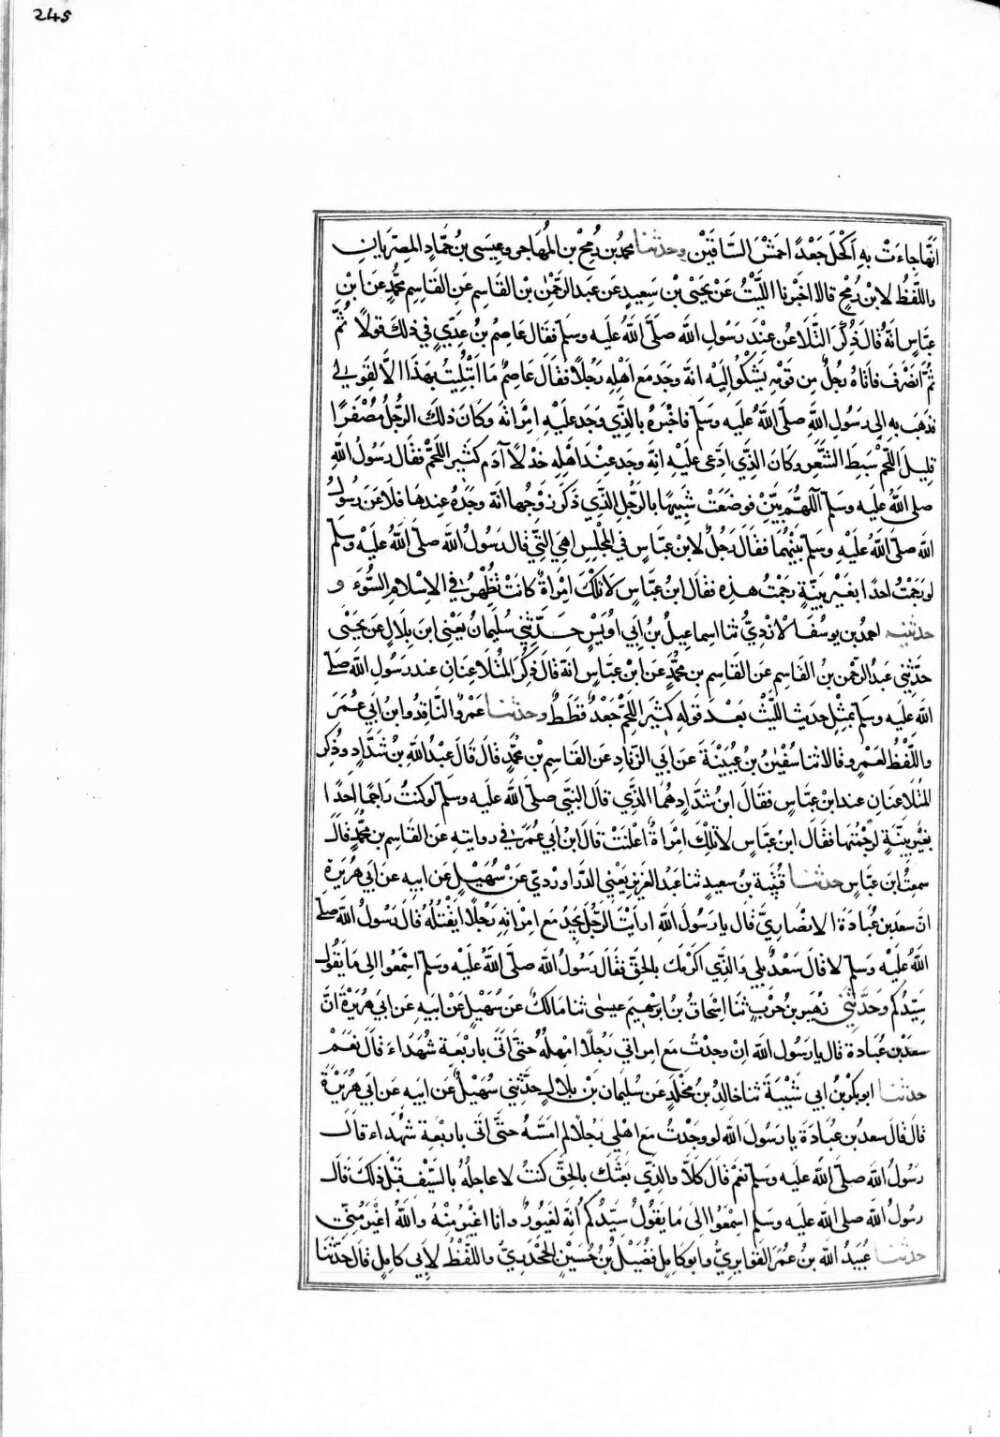 245
انها جاءت به اكحل جعدا احمش الساقين وحدثنا محمد بن رمح بن المهاجر وعيسى بن حماد المصريان
واللفظ لابن رمح قالا اخبرنا الليث عن يحيى بن سعيد عن عبد الرحمن بن القاسم عن القاسم محمد عن ابن
عباس انه قال ذكر التلاعن عند رسول الله صلى الله عليه وسلم فقال عاصم بن عدي في ذلك قولا ثم
ثم انصرف فاتاه رجل من قومه يشكو اليه انه وجد مع اهله رجلا فقال عاصم ما ابتليت بهذا الا لقولي
فذهب به الى رسول الله صلى الله عليه وسلم فاخبره بالذي وجد عليه امراته وكان ذلك الرجل مصفرا
قليل اللحم سبط الشعر وكان الذي ادعى عليه انه وجد عند اهله خدلا آدم كثير اللحم فقال رسول الله
صلى الله عليه وسلم اللهم بين فوضعت شبيها بالرجل الذي ذكر زوجها انه وجده عندها فلاعن رسول
الله صلى الله عليه وسلم بينهما فقال رجل لابن عباس في المجلس اهي التي قال رسول الله صلى الله عليه وسلم
لو رجمت احدا بغير بينة رجمت هذه فقال ابن عباس لا تلك امراة كانت تظهر في الاسلام السوء و
حدثنيه احمد بن يوسف الازدي ثنا اسماعيل بن ابي اويس حدثني سليمان يعني ابن بلال عن يحيى
حدثني عبد الرحمن بن القاسم عن القاسم بن محمد عن ابن عباس انه قال ذكر المتلاعنان عند رسول الله صلى
الله عليه وسلم بمثل حديث الليث بعد قوله كثير اللحم جعد قطط وحدثنا عمرو الناقد وابن ابي عمر
واللفظ لعمرو قالا ثنا سفين بن عيينة عن ابي الزناد عن القاسم بن محمد قال قال عبد الله بن شداد وذكر
المتلاعنان عند ابن عباس فقال ابن شداد اهما الذي قال النبي صلى الله عليه وسلم لو كنت راجما احدا
بغير بينة لرجمتها فقال ابن عباس لا تلك امراة اعلنت قال ابن ابي عمر في روايته عن القاسم بن محمد قال
سمعت ابن عباس حدثنا قتيبة بن سعيد ثنا عبد العزيز يعني الدراوردي عن سهيل عن ابيه عن ابي هريرة
ان سعد بن عبادة الانصاري قال يا رسول الله ارايت الرجل يجد مع امراته رجلا ايقتله قال رسول الله صلى
الله عليه وسلم لا قال سعد بلى والذي اكرمك بالحق فقال رسول الله صلى الله عليه وسلم اسمعوا الى ما يقول
سيدكم وحدثني زهير بن حرب ثنا اسحاق بن ابرهيم عيسى ثنا مالك عن سهيل عن ابيه عن ابي هريرة ان
سعد بن عبادة قال يا رسول الله ان وجدت مع امراتي رجلا امهله حتى اتى باربعة شهداء قال نعم
حدثنا ابو بكر بن ابي شيبة ثنا خالد بن مخلد عن سليمان بن بلال حدثني سهيل عن ابيه عن ابي هريرة
قال قال سعد بن عبادة يا رسول الله لو وجدت مع اهلي رجلا لم امسه حتى اتى باربعة شهداء قال
رسول الله صلى الله عليه وسلم نعم قال كلا والذي بعثك بالحق كنت لاعاجله بالسيف قبل ذلك قال
رسول الله صلى الله عليه وسلم اسمعوا الى ما يقول سيدكم انه لغيور وانا اغير منه والله اغير مني
حدثنا عبيد الله بن عمر القواريري وابو كامل فضيل بن حسين الجحدري واللفظ لابي كامل قال حدثنا